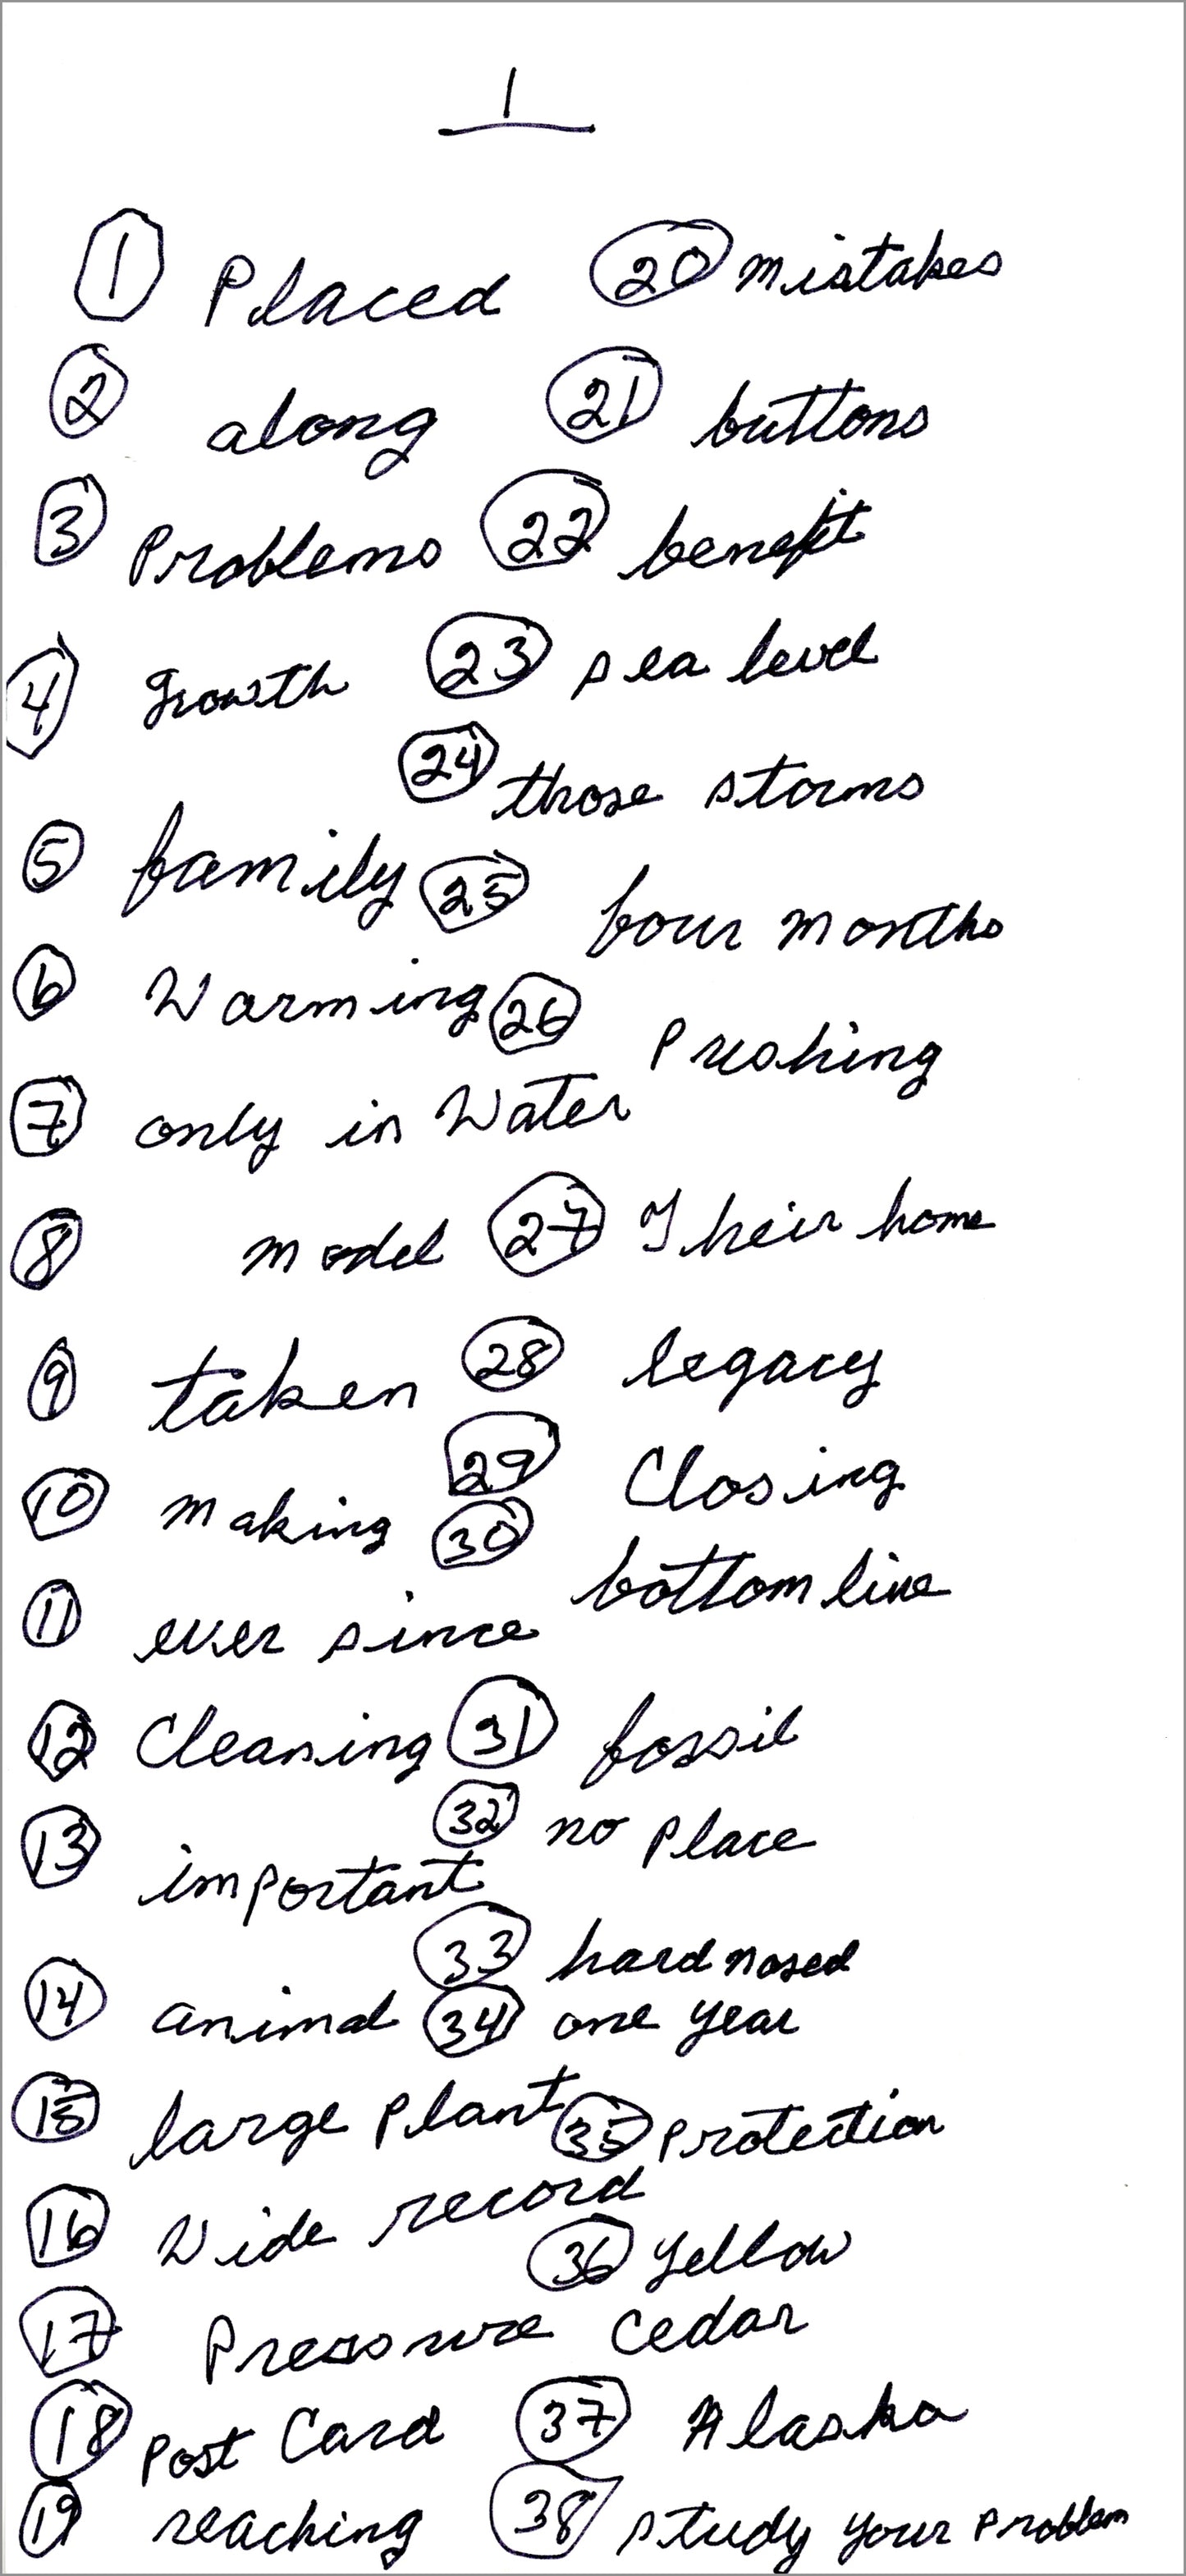 1
1 Placed
2 along
3 Problems
4 Growth
5 family
6 Warming
7 only in Water
8 model
9 taken
10 making
11 ever since
12 Cleaning
13 important
14 animal
15 large Plant
16 Wide record
17 Pressure
18 Post Card
19 reaching
20 mistakes
21 buttons
22 benefit
23 sea level
24 those storms
25 four months
26 Pushing
27 Their home
28 legacy
29 Closing
30 bottom line
31 fossil
32 no Place
33 hard nosed
34 one year
35 Protection
36 Yellow
Cedar
37 Alaska
38 study your Problem